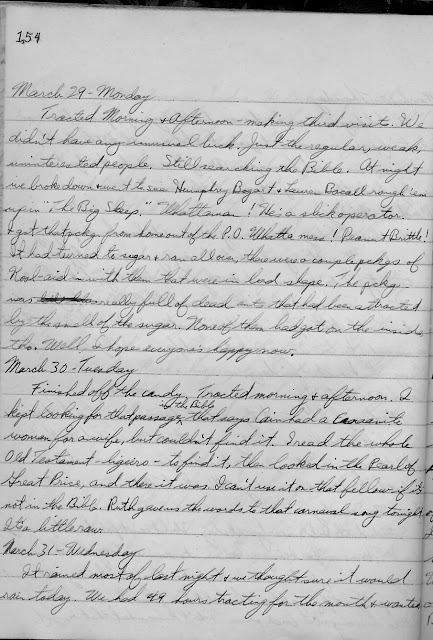 154
March 29 - Monday
Tracted Morning & Afternoon - making third visits. We
didn't have any unusual luck. Just the regular, weak,
uninterested people. Still searching the Bible. At night
we broke down & went to see Humphry Bogart & Lauren Bacall rough 'em
up in "The Big Sleep." Whattaman! He's a slick operator.
I got that pckg from home out of the P.O. Whatta mess! Peanut Brittle!
It had turned to sugar & ran all over, there was a couple pckgs of
Kool-aid in with them that were in bad shape. The pckg
was really full of dead ants that had been attracted
by the smell of the sugar. None of them had got on the inside
tho. Well, I hope everyone's happy now.
March 30 - Tuesday
Finished off the candy. Tracted morning & afternoon. I
kept looking for that passage in the Bible that says Cain had a Canaanite
woman for a wife, but couldn't find it. I read the whole
Old Testament - ligeiro - to find it, then looked in the Pearl of
Great Price, and there it was. I can't use it on that fellow if it's
not in the Bible. Ruth gave us the words to that carnaval song tonight.
It's a little raw.
March 31 - Wednesday
It rained most of last night & we thought sure it would
rain today. We had 49 hours tracting for the month & wanted